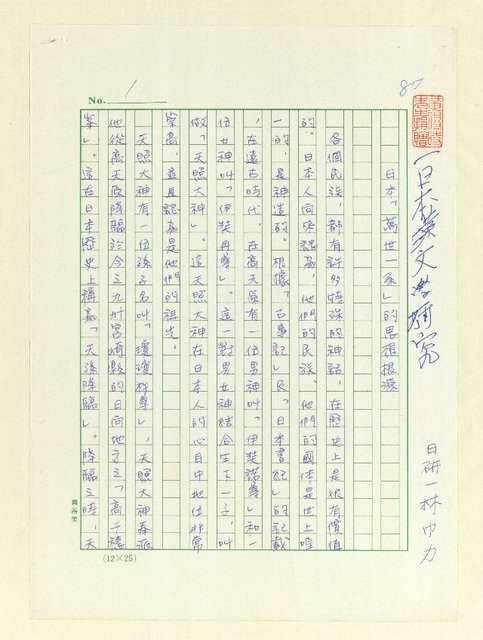 No. 1
87
「日本漢文學研究
日研一 林巾力
日本「萬世一系」的思想根源
各個民族，都有許多特殊的神話，在歷史上是很有價值
的。日本人向來認為，他們的民族、他們的國体是世上唯
一的，是神造的。根據「古事記」及「日本書紀」的記載
，在遠古時代，在高天原有一位男神叫「伊裝諾尊」和一
位女神叫「伊裝冉尊」。這一對男女神結合生下一子，叫
做「天照大神」。這天照大神在日本人的心目中地位非常
崇高，並且認為是他們的祖先。
天照大神有一位孫子名叫「瓊瓊杵尊」，天照大神奉派
他從高天原降臨於今之九州宮崎縣的日向地方之「高千穗
峯」。這在日本歷史上稱為「天孫降臨」。降臨之時，天
(12×25)